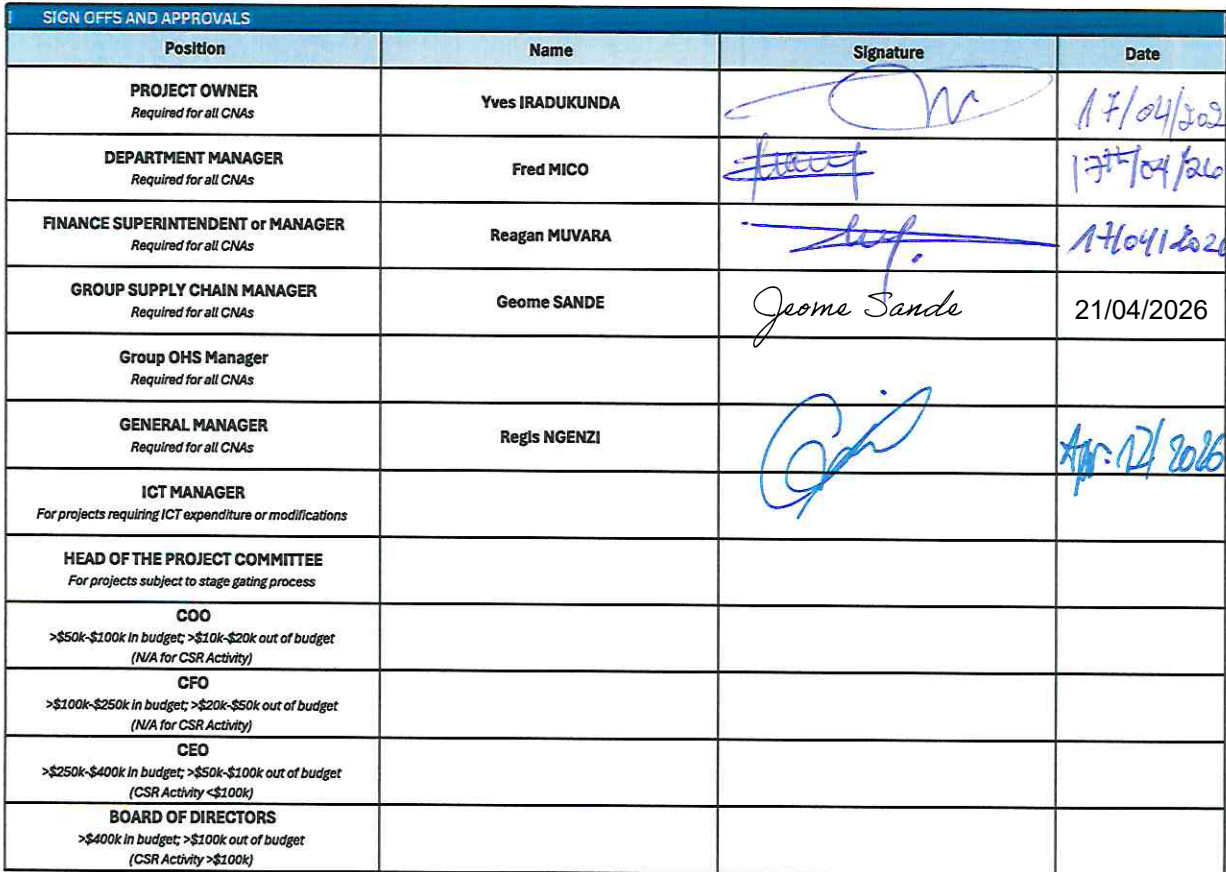 SIGN OFFS AND APPROVALS
Position Name Signature Date
PROJECT OWNER
Required for all CNAs
Yves IRADUKUNDA
17/04/202
DEPARTMENT MANAGER
Required for all CNAs
Fred MICO
17th/04/26
FINANCE SUPERINTENDENT or MANAGER
Required for all CNAs
Reagan MUVARA
17/04/2026
GROUP SUPPLY CHAIN MANAGER
Required for all CNAs
Geome SANDE
Jeome Sande
21/04/2026
Group OHS Manager
Required for all CNAs
GENERAL MANAGER
Required for all CNAs
Regis NGENZI
ICT MANAGER
For projects requiring ICT expenditure or modifications
HEAD OF THE PROJECT COMMITTEE
For projects subject to stage gating process
COO
>$50k-$100k in budget; >$10k-$20k out of budget
(N/A for CSR Activity)
CFO
>$100k-$250k in budget; >$20k-$50k out of budget
(N/A for CSR Activity)
CEO
>$250k-$400k in budget; >$50k-$100k out of budget
(CSR Activity <$100k)
BOARD OF DIRECTORS
>$400k in budget; >$100k out of budget
(CSR Activity >$100k)